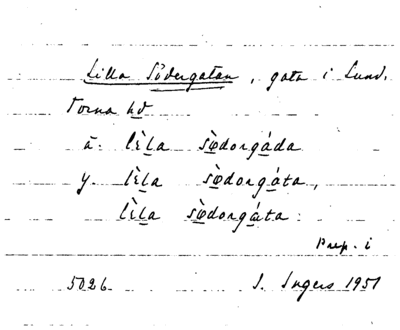 Lilla Södergatan, gata i Lund.
Torna hd
ä. lὲla sö̀dorgáda
y. lὲla sö̀dorgáta,
lὲla sö̀dorgáta.
Prep. i
5026 I. Ingers 1951